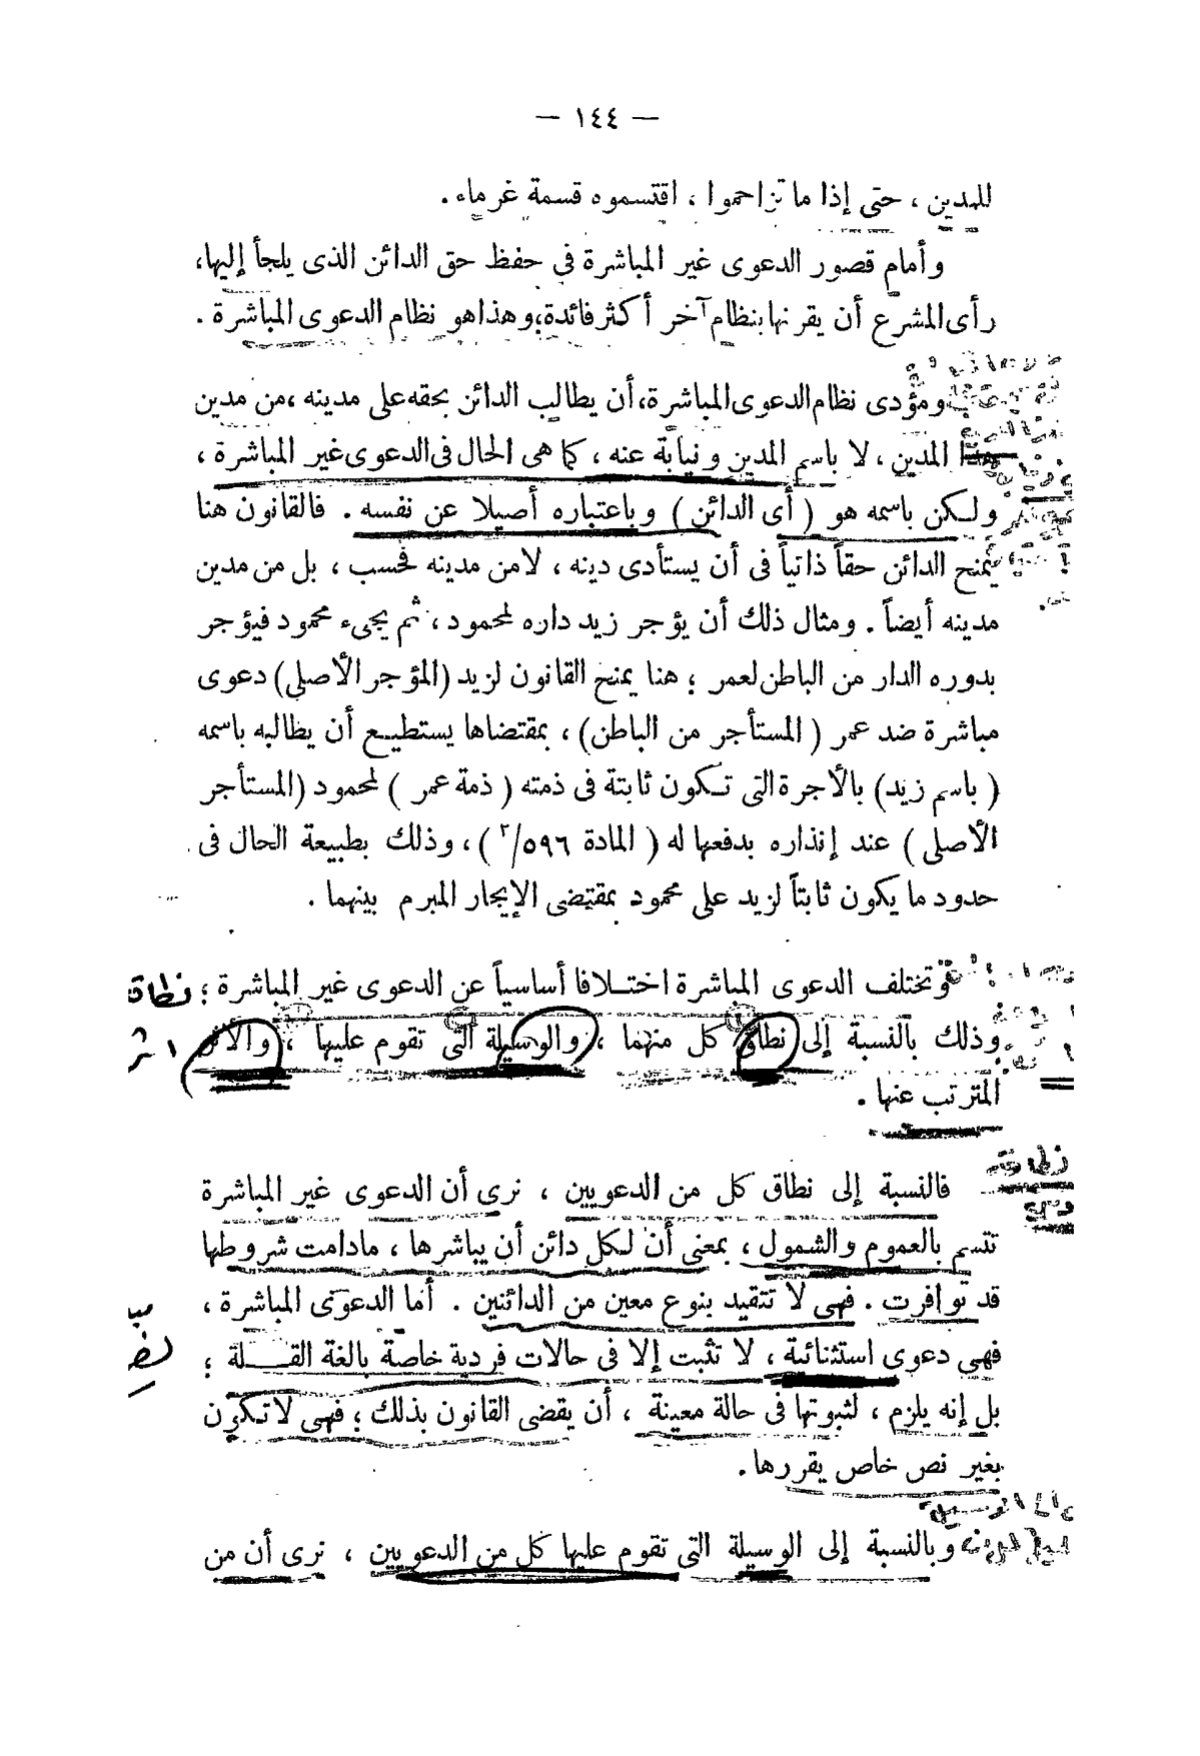 — ١٤٤ —
للمدين ، حتى إذا ما تزاحموا ، اقتسموه قسمة غرماء .
وأمام قصور الدعوى غير المباشرة فى حفظ حق الدائن الذى يلجأ إليها،
رأى المشرع أن يقرنها بنظام آخر أكثر فائدة؛ وهذا هو نظام الدعوى المباشرة .
ومؤدى نظام الدعوى المباشرة، أن يطالب الدائن بحقه على مدينه ،من مدين
هذا المدين ، لا باسم المدين ونيابة عنه ، كما هى الحال فى الدعوى غير المباشرة ،
ولكن باسمه هو ( أى الدائن ) وباعتباره أصيلا عن نفسه . فالقانون هنا
يمنح الدائن حقاً ذاتياً فى أن يستأدى دينه ، لامن مدينه فحسب ، بل من مدين
مدينه أيضاً . ومثال ذلك أن يؤجر زيد داره لمحمود ، ثم يجىء محمود فيؤجر
بدوره الدار من الباطن لعمر ؛ هنا يمنح القانون لزيد (المؤجر الأصلى) دعوى
مباشرة ضد عمر ( المستأجر من الباطن) ، بمقتضاها يستطيع أن يطالبه باسمه
( باسم زيد) بالأجرة التى تكون ثابتة فى ذمته ( ذمة عمر ) لمحمود (المستأجر
الأصلى ) عند إنذاره بدفعها له ( المادة ٥٩٦/٢ ) ، وذلك بطبيعة الحال فى
حدود ما يكون ثابتاً لزيد على محمود بمقتضى الإيجار المبرم بينهما .
وتختلف الدعوى المباشرة اختلافا أساسياً عن الدعوى غير المباشرة ؛ نطاق
وذلك بالنسبة إلى نطاق كل منهما ، والوسيلة التى تقوم عليها ، والأثر
المترتب عنها .
فالنسبة إلى نطاق كل من الدعويين ، نرى أن الدعوى غير المباشرة
تتسم بالعموم والشمول ، بمعنى أن لكل دائن أن يباشرها ، مادامت شروطها
قد توافرت . فهى لا تتقيد بنوع معين من الدائنين . أما الدعوى المباشرة ،
فهى دعوى استثنائية ، لا تثبت إلا فى حالات فردية خاصة بالغة القلة ؛
بل إنه يلزم ، لثبوتها فى حالة معينة ، أن يقضى القانون بذلك ؛ فهى لا تكون
بغير نص خاص يقررها .
وبالنسبة إلى الوسيلة التى تقوم عليها كل من الدعويين ، نرى أن من